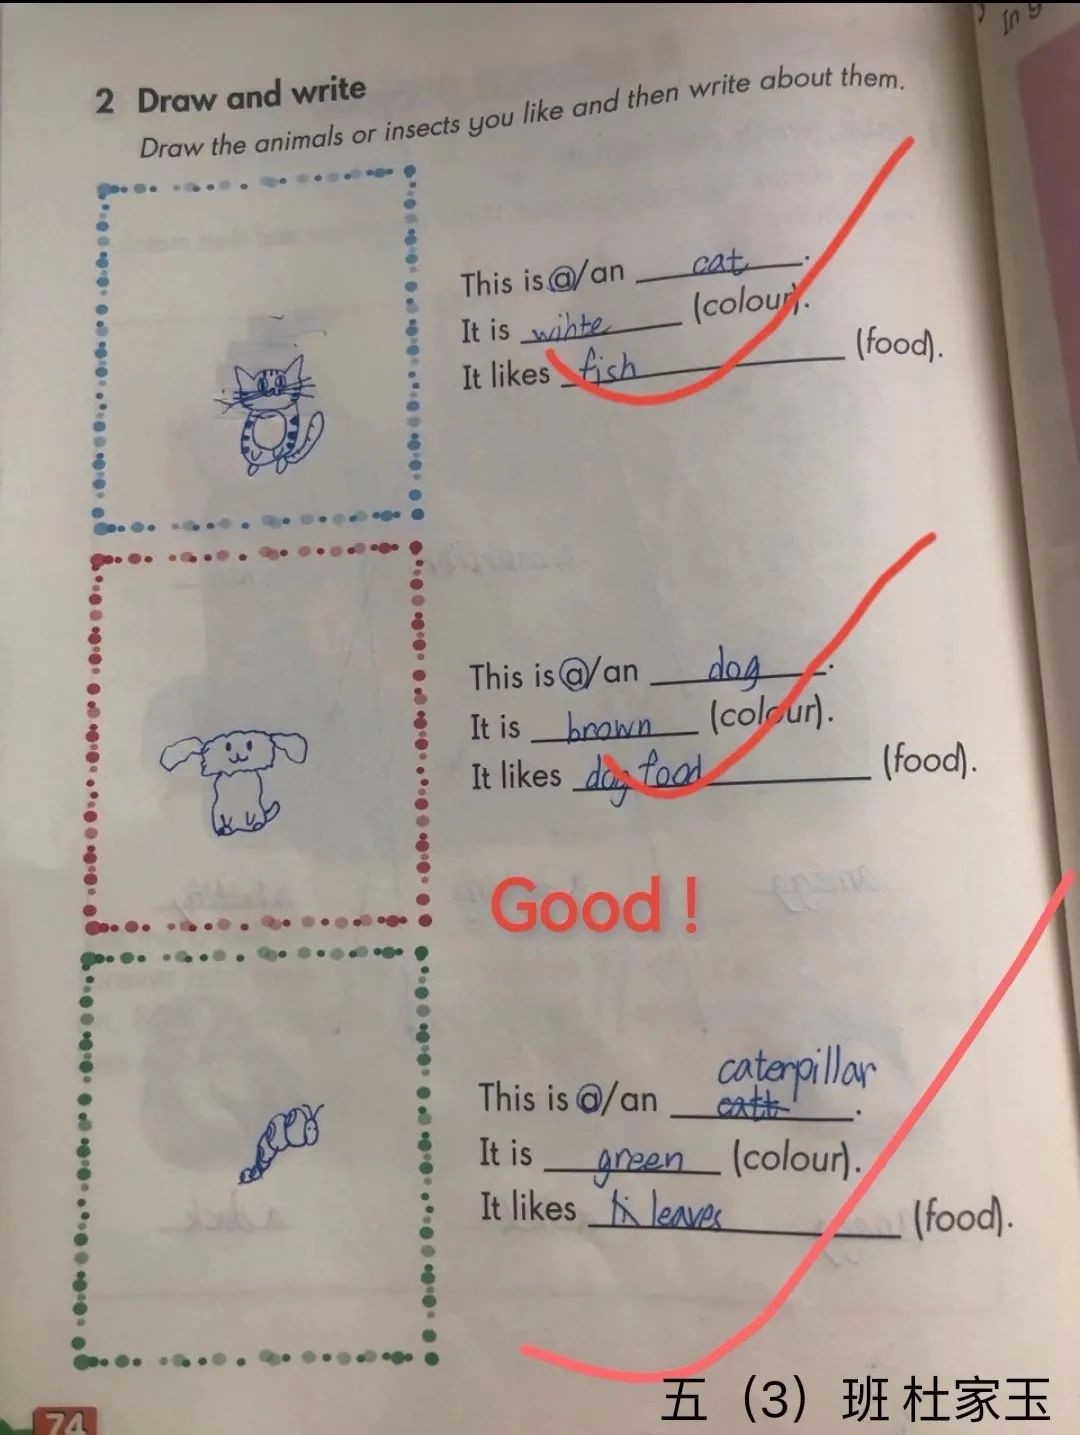 In
2 Draw and write
Draw the animals or insects you like and then write about them.
This is a/an cat.
It is wihte (colour).
It likes fish (food).
This is a/an dog.
It is brown (colour).
It likes dog food (food).
Good!
caterpillar
This is a/an catt.
It is green (colour).
It likes leaves (food).
五（3）班 杜家玉
74